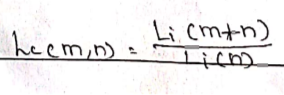 Lc(m,n) = Li(m+n)
Li(n)